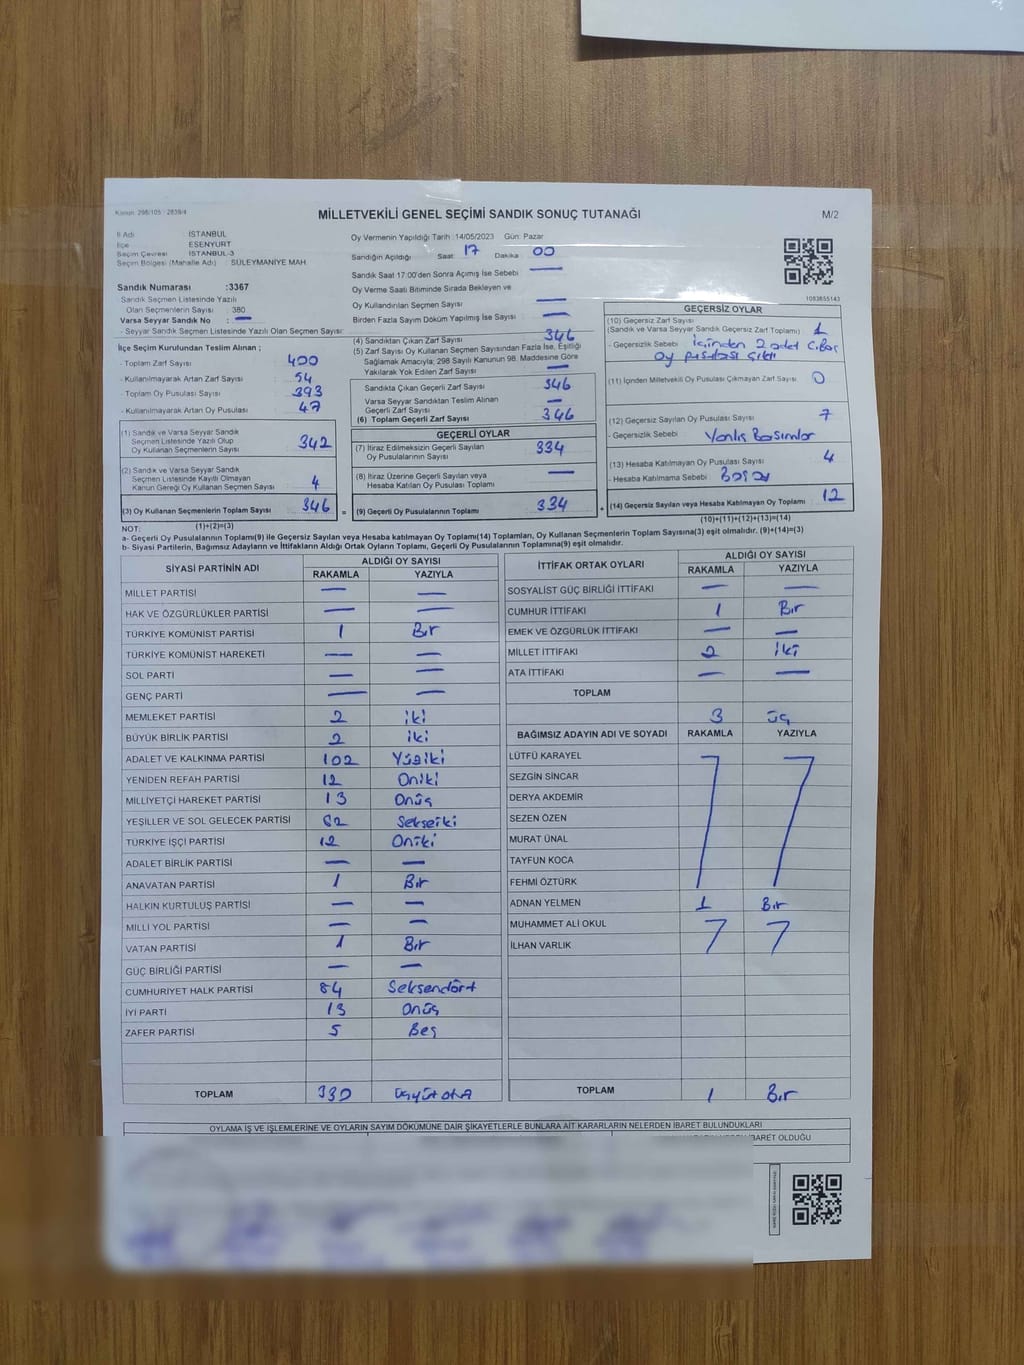 Kanun: 298/105 - 2839/4
MİLLETVEKİLİ GENEL SEÇİMİ SANDIK SONUÇ TUTANAĞI
M/2
İl Adı : İSTANBUL
İlçe : ESENYURT
Seçim Çevresi : İSTANBUL-3
Seçim Bölgesi (Mahalle Adı) : SÜLEYMANİYE MAH.
Sandık Numarası :3367
Sandık Seçmen Listesinde Yazılı
Olan Seçmenlerin Sayısı : 380
Varsa Seyyar Sandık No : —
- Seyyar Sandık Seçmen Listesinde Yazılı Olan Seçmen Sayısı:
Oy Vermenin Yapıldığı Tarih :14/05/2023 Gün: Pazar
Sandığın Açıldığı Saat 17 Dakika 00
Sandık Saat 17:00'den Sonra Açımış İse Sebebi —
Oy Verme Saati Bitiminde Sırada Bekleyen ve
Oy Kullandırılan Seçmen Sayısı —
Birden Fazla Sayım Döküm Yapılmış İse Sayısı —
1083655143
İlçe Seçim Kurulundan Teslim Alınan ;
- Toplam Zarf Sayısı : 400
- Kullanılmayarak Artan Zarf Sayısı : 54
- Toplam Oy Pusulası Sayısı : 393
- Kullanılmayarak Artan Oy Pusulası : 47
(1) Sandık ve Varsa Seyyar Sandık
Seçmen Listesinde Yazılı Olup
Oy Kullanan Seçmenlerin Sayısı 342
(2) Sandık ve Varsa Seyyar Sandık
Seçmen Listesinde Kayıtlı Olmayan
Kanun Gereği Oy Kullanan Seçmen Sayısı 4
(3) Oy Kullanan Seçmenlerin Toplam Sayısı 346
(4) Sandıktan Çıkan Zarf Sayısı 346
(5) Zarf Sayısı Oy Kullanan Seçmen Sayısından Fazla İse, Eşitliği
Sağlamak Amacıyla; 298 Sayılı Kanunun 98. Maddesine Göre
Yakılarak Yok Edilen Zarf Sayısı —
Sandıkta Çıkan Geçerli Zarf Sayısı 346
Varsa Seyyar Sandıktan Teslim Alınan
Geçerli Zarf Sayısı —
(6) Toplam Geçerli Zarf Sayısı 346
GEÇERLİ OYLAR
(7) İtiraz Edilmeksizin Geçerli Sayılan
Oy Pusulalarının Sayısı 334
(8) İtiraz Üzerine Geçerli Sayılan veya
Hesaba Katılan Oy Pusulası Toplamı —
= (9) Geçerli Oy Pusulalarının Toplamı 334
GEÇERSİZ OYLAR
(10) Geçersiz Zarf Sayısı
(Sandık ve Varsa Seyyar Sandık Geçersiz Zarf Toplamı) 1
- Geçersizlik Sebebi : içinden 2 adet C.Baş
oy pusulası çıktı
(11) İçinden Milletvekili Oy Pusulası Çıkmayan Zarf Sayısı 0
(12) Geçersiz Sayılan Oy Pusulası Sayısı 7
- Geçersizlik Sebebi : Yanlış Basımlar
(13) Hesaba Katılmayan Oy Pusulası Sayısı 4
- Hesaba Katılmama Sebebi :
+ (14) Geçersiz Sayılan veya Hesaba Katılmayan Oy Toplamı 12
NOT: (1)+(2)=(3)
(10)+(11)+(12)+(13)=(14)
a- Geçerli Oy Pusulalarının Toplamı(9) ile Geçersiz Sayılan veya Hesaba Katılmayan Oy Toplamı(14) Toplamları, Oy Kullanan Seçmenlerin Toplam Sayısına(3) eşit olmalıdır. (9)+(14)=(3)
b- Siyasi Partilerin, Bağımsız Adayların ve İttifakların Aldığı Ortak Oyların Toplamı, Geçerli Oy Pusulalarının Toplamına(9) eşit olmalıdır.
SİYASİ PARTİNİN ADI ALDIĞI OY SAYISI
RAKAMLA YAZIYLA
MİLLET PARTİSİ — —
HAK VE ÖZGÜRLÜKLER PARTİSİ — —
TÜRKİYE KOMÜNİST PARTİSİ 1 Bir
TÜRKİYE KOMÜNİST HAREKETİ — —
SOL PARTİ — —
GENÇ PARTİ — —
MEMLEKET PARTİSİ 2 iki
BÜYÜK BİRLİK PARTİSİ 2 iki
ADALET VE KALKINMA PARTİSİ 102 Yüziki
YENİDEN REFAH PARTİSİ 12 Oniki
MİLLİYETÇİ HAREKET PARTİSİ 13 Onüç
YEŞİLLER VE SOL GELECEK PARTİSİ 82 Sekseiki
TÜRKİYE İŞÇİ PARTİSİ 12 Oniki
ADALET BİRLİK PARTİSİ — —
ANAVATAN PARTİSİ 1 Bir
HALKIN KURTULUŞ PARTİSİ — —
MİLLİ YOL PARTİSİ — —
VATAN PARTİSİ 1 Bir
GÜÇ BİRLİĞİ PARTİSİ — —
CUMHURİYET HALK PARTİSİ 84 Seksendört
İYİ PARTİ 13 Onüç
ZAFER PARTİSİ 5 Beş
TOPLAM 330
İTTİFAK ORTAK OYLARI ALDIĞI OY SAYISI
RAKAMLA YAZIYLA
SOSYALİST GÜÇ BİRLİĞİ İTTİFAKI — —
CUMHUR İTTİFAKI 1 Bir
EMEK VE ÖZGÜRLÜK İTTİFAKI — —
MİLLET İTTİFAKI 2 iki
ATA İTTİFAKI — —
TOPLAM
3 üç
BAĞIMSIZ ADAYIN ADI VE SOYADI RAKAMLA YAZIYLA
LÜTFÜ KARAYEL
SEZGİN SİNCAR
DERYA AKDEMİR
SEZEN ÖZEN
MURAT ÜNAL
TAYFUN KOCA
FEHMİ ÖZTÜRK
ADNAN YELMEN 1 Bir
MUHAMMET ALİ OKUL
İLHAN VARLIK
TOPLAM 1 Bir
OYLAMA İŞ VE İŞLEMLERİNE VE OYLARIN SAYIM DÖKÜMÜNE DAİR ŞİKAYETLERLE BUNLARA AİT KARARLARIN NELERDEN İBARET BULUNDUKLARI
İBARET OLDUĞU